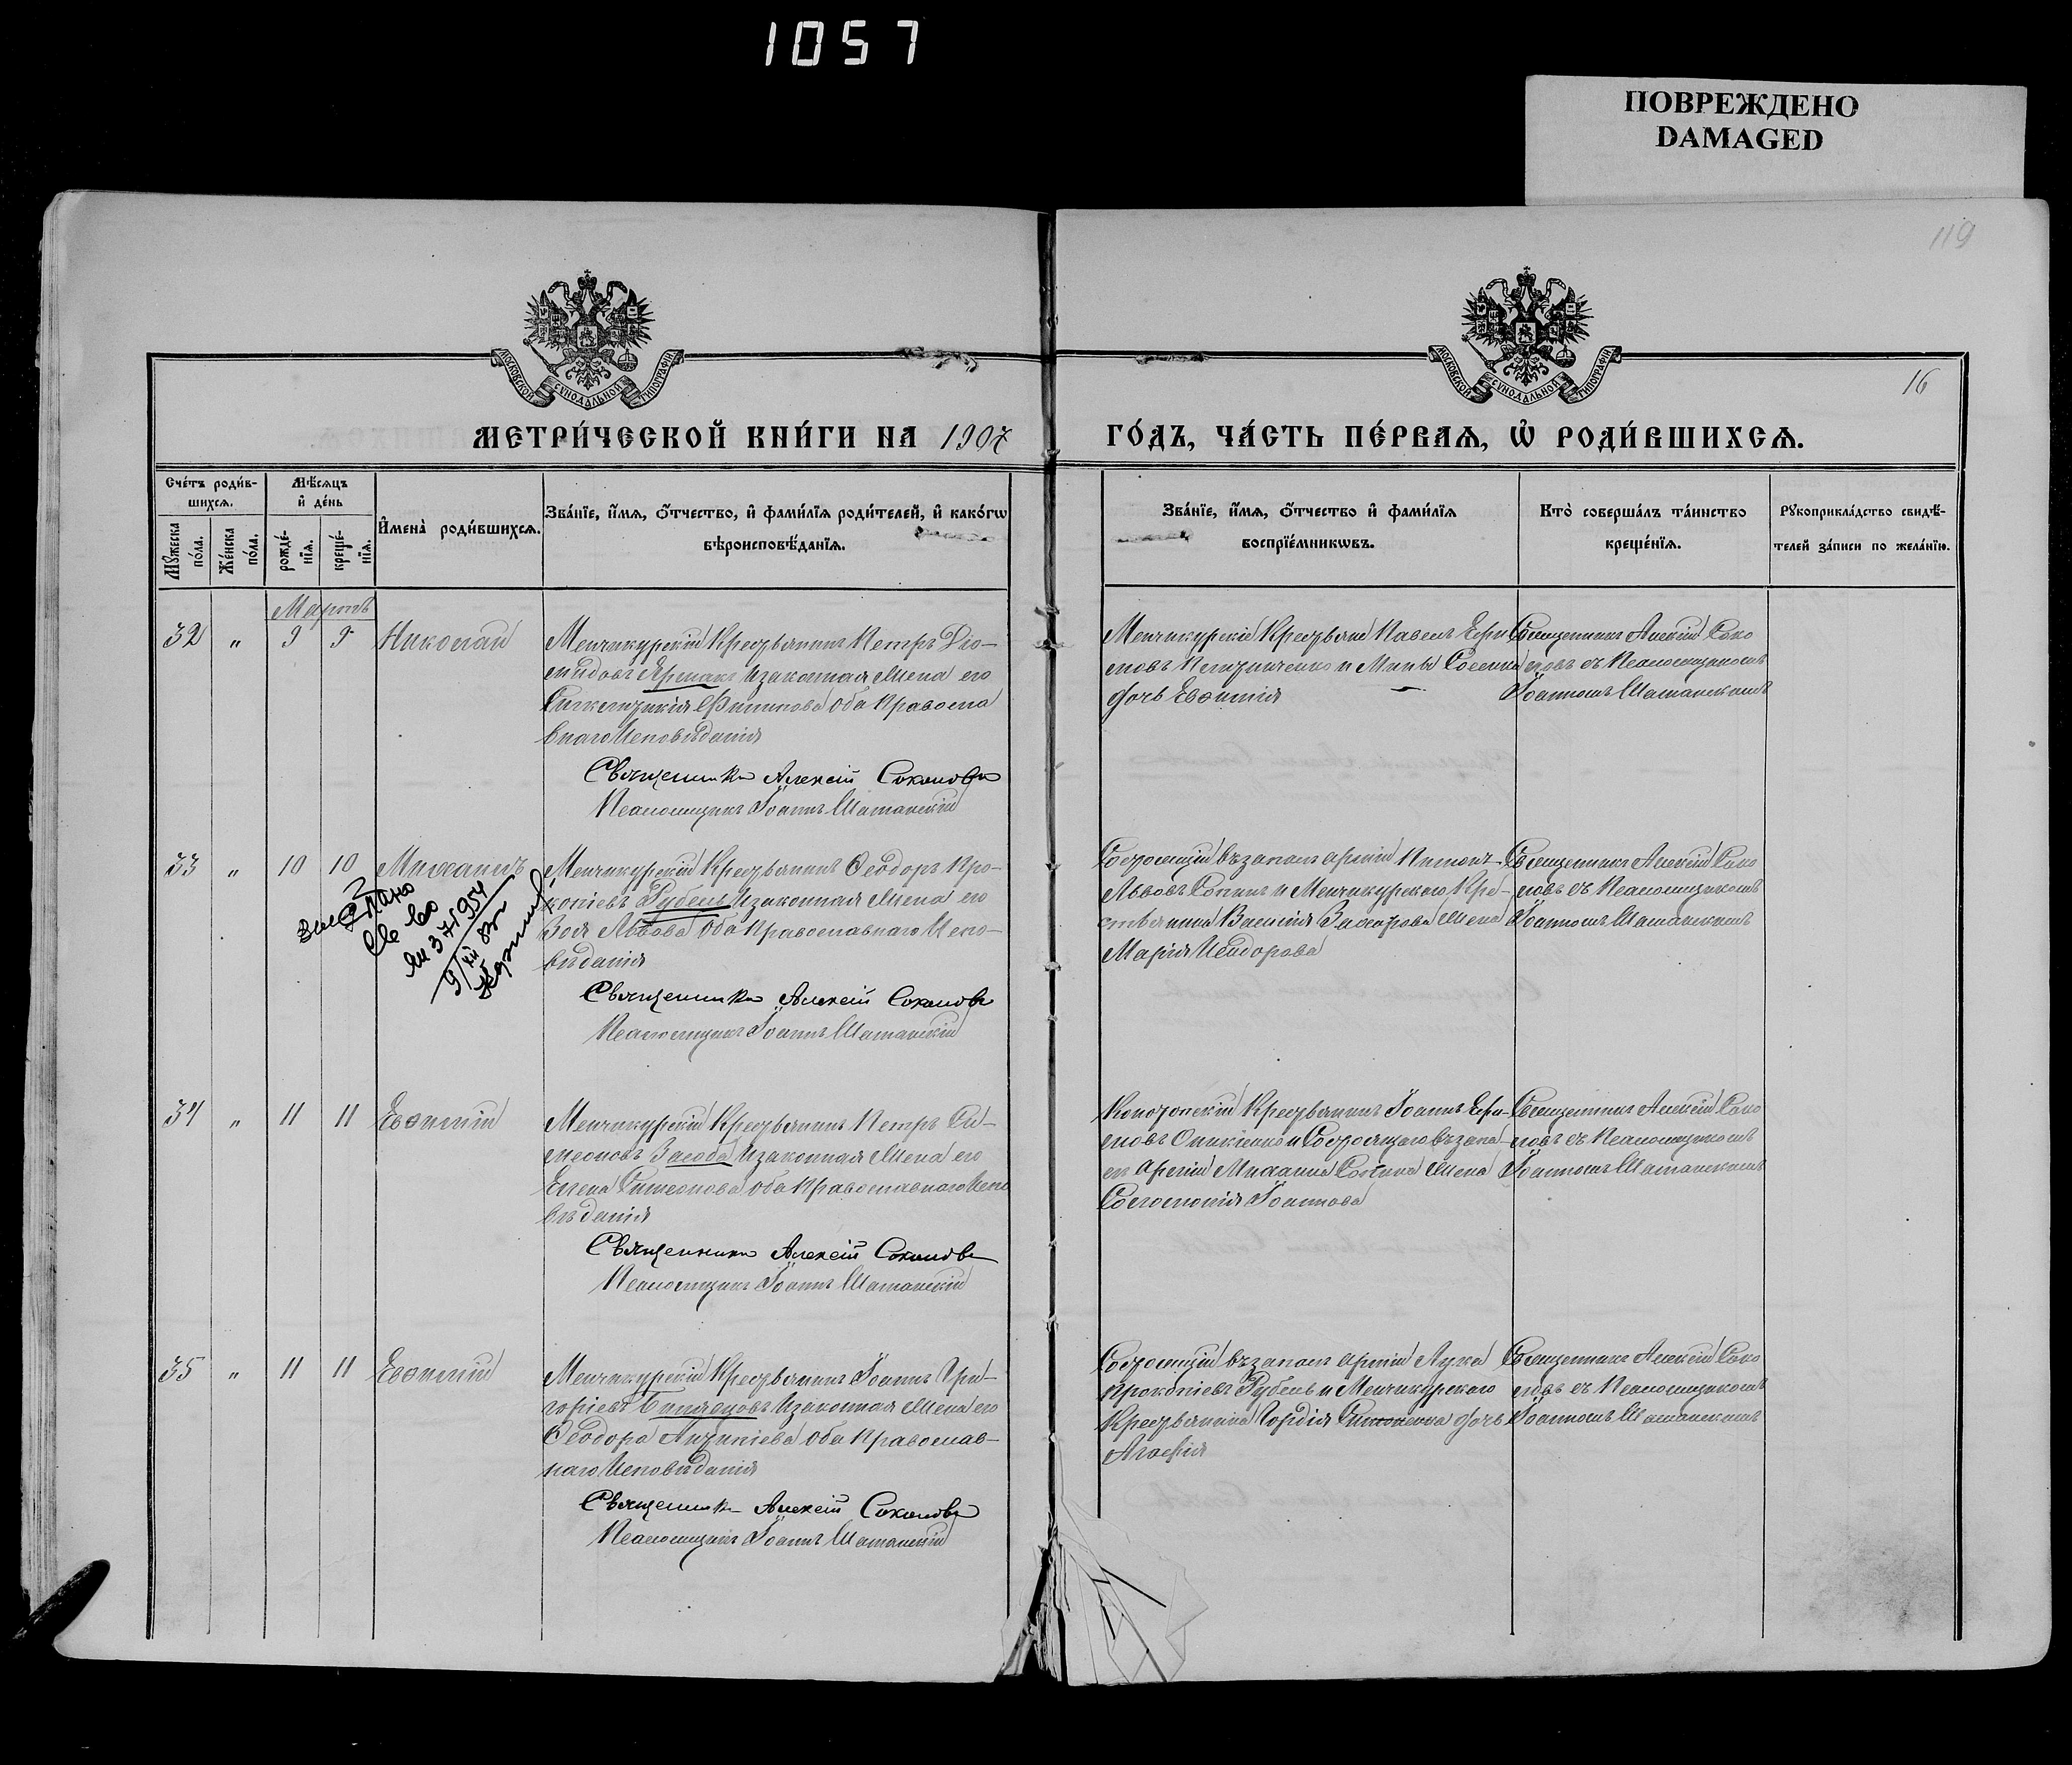 1057
ПОВРЕЖДЕНО
DAMAGED
119
16
МОСКОВСКОЙ СѴНОДАЛЬНОЙ ТИПОГРАФІИ
МОСКОВСКОЙ СѴНОДАЛЬНОЙ ТИПОГРАФІИ
МЕТРИ́ЧЕСКОЙ КНИ́ГИ НА 1907 ГО́ДЪ, ЧА́СТЬ ПЕ́РВАЯ, Ѡ҆ РОДИ́ВШИХСЯ.
Сче́тъ роди́в-
шихся.
Мꙋ́жеска
по́ла.
Же́нска
по́ла.
Мѣ́сяцъ
и҆ де́нь
рожде́-
нїя.
креще́-
нїя.
И҆мена̀ роди́вшихся.
Зва́нїе, и҆́мя, ѻ҆́тчество, и҆ фами́лїя роди́телей, и҆ како́гѡ
вѣроисповѣ́данїя.
Зва́нїе, и҆́мя, ѻ҆́тчество и҆ фами́лїя
воспрїе́мникѡвъ.
Кто̀ соверша́лъ та́инство
креще́нїя.
Рꙋкоприкла́дство свидѣ́-
телей за́писи по жела́нїю.
Мартъ
32 " 9 9 Николай
Менчикурскій Крестьянинъ Петръ Діо-
мидовъ Ярмакъ и законная Жена его
Филиппова оба Правосла
внаго Исповѣданія
Священникъ Алексій Соколовъ
Псаломщикъ Іоаннъ Шаманскій
Менчикурскій Крестьян Павелъ
дочь Евфимія
Священникъ Алексій Соко
ловъ съ Псаломщикомъ
Іоанномъ Шаманскимъ
33 " 10 10 Михаилъ
Менчикурскій Крестьянинъ Ѳеодоръ Про-
копіевъ Рубель и законная Жена его
Зоя Львова оба Православнаго Испо-
вѣданія
Священникъ Алексій Соколовъ
Псаломщикъ Іоаннъ Шаманскій
Состоящій въ запасѣ арміи
Львовъ и Менчикурскаго Кре-
стьянина Василія Захарова Жена
Марія Исидорова
Священникъ Алексій Соко
ловъ съ Псаломщикомъ
Іоанномъ Шаманскимъ
34 " 11 11 Евфимій
Менчикурскій Крестьянинъ Петръ Си-
меоновъ Засоба и законная Жена его
Елена Симеонова оба Православнаго Испо
вѣданія
Священникъ Алексій Соколовъ
Псаломщикъ Іоаннъ Шаманскій
Крестьянинъ Іоаннъ
и Состоящаго въ запа-
сѣ Арміи Михаила Жена
Іоаннова
Священникъ Алексій Соко
ловъ съ Псаломщикомъ
Іоанномъ Шаманскимъ
35 " 11 11 Евфимій
Менчикурскій Крестьянинъ Іоаннъ Гри-
горіевъ и законная Жена его
Ѳеодора оба Православ-
наго Исповѣданія
Священникъ Алексій Соколовъ
Псаломщикъ Іоаннъ Шаманскій
Состоящій въ запасѣ арміи Лука
Прокопіевъ Рубель и Менчикурскаго
Крестьянина Гордія дочь
Агафія
Священникъ Алексій Соко
ловъ съ Псаломщикомъ
Іоанномъ Шаманскимъ